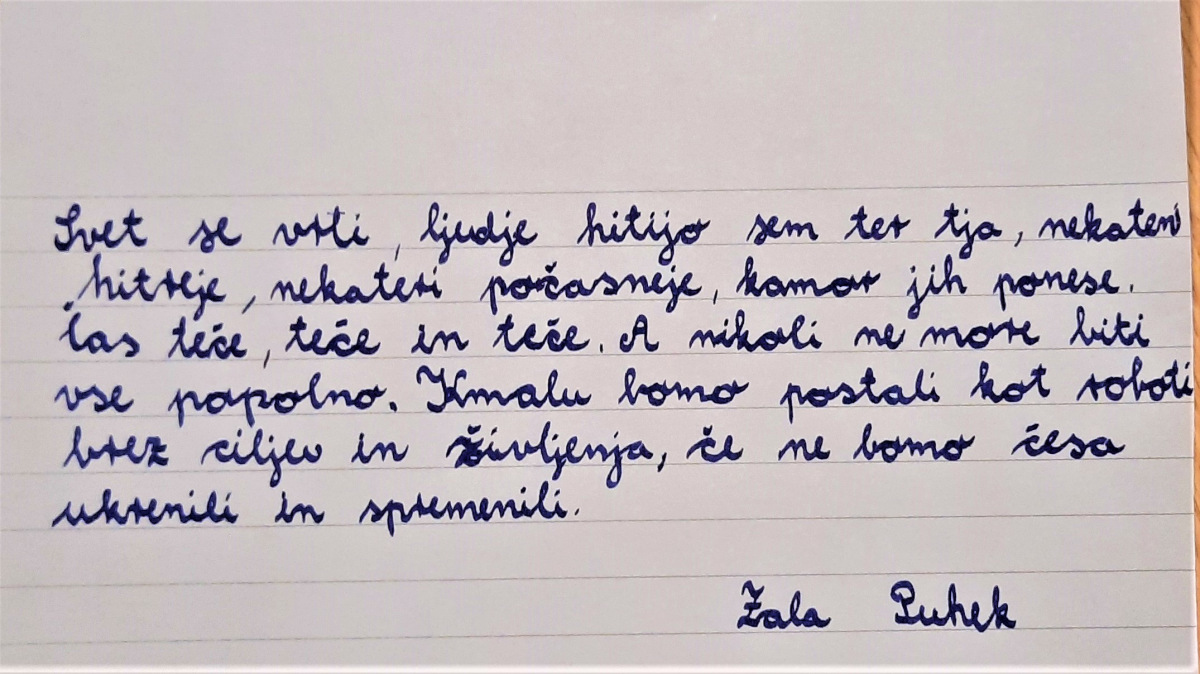 Svet se vrti, ljudje hitijo sem ter tja, nekateri
hitreje, nekateri počasneje, kamor jih ponese.
Čas teče, teče in teče. A nikoli ne more biti
vse popolno. Kmalu bomo postali kot roboti
brez ciljev in življenja, če ne bomo česa
ukrenili in spremenili.
Zala Puhek